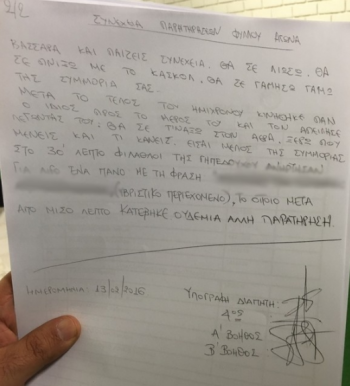 2/2
ΣΥΝΕΧΕΙΑ ΠΑΡΑΤΗΡΗΣΕΩΝ ΦΥΛΛΟΥ ΑΓΩΝΑ
ΚΑΙ ΠΑΙΖΕΙΣ ΣΥΝΕΧΕΙΑ. ΘΑ ΣΕ ΛΙΩΣΩ. ΘΑ
ΣΕ ΠΝΙΞΩ ΜΕ ΤΟ ΚΑΣΚΟΛ. ΘΑ ΣΕ ΓΑΜΗΣΩ ΓΑΜΩ
ΤΗΣ ΣΥΜΜΟΡΙΑ ΣΑΣ.
ΜΕΤΑ ΤΟ ΤΕΛΟΣ ΤΟΥ ΗΜΙΧΡΟΝΟΥ ΚΙΝΗΘΗΚΕ ΠΑΛΙ
Ο ΙΔΙΟΣ ΠΡΟΣ ΤΟ ΜΕΡΟΣ ΤΟΥ ΚΑΙ ΤΟΝ ΑΠΕΙΛΗΣΕ
ΛΕΓΟΝΤΑΣ ΤΟΥ: ΘΑ ΣΕ ΤΙΝΑΞΩ ΣΤΟΝ ΑΕΡΑ. ΞΕΡΩ ΠΟΥ
ΜΕΝΕΙΣ ΚΑΙ ΤΙ ΚΑΝΕΙΣ. ΕΙΣΑΙ ΜΕΛΟΣ ΤΗΣ ΣΥΜΜΟΡΙΑΣ
ΣΤΟ 30' ΛΕΠΤΟ ΦΙΛΑΘΛΟΙ ΤΗΣ ΓΗΠΕΔΟΥΧΟΥ
ΕΝΑ ΠΑΝΟ ΜΕ ΤΗ ΦΡΑΣΗ
(ΥΒΡΙΣΤΙΚΟ ΠΕΡΙΕΧΟΜΕΝΟ), ΤΟ ΟΠΟΙΟ ΜΕΤΑ
ΑΠΟ ΜΙΣΟ ΛΕΠΤΟ ΚΑΤΕΒΗΚΕ ΟΥΔΕΜΙΑ ΑΛΛΗ ΠΑΡΑΤΗΡΗΣΗ
ΗΜΕΡΟΜΗΝΙΑ:
ΥΠΟΓΡΑΦΗ ΔΙΑΙΤΗΤΗ
4ος
Α' ΒΟΗΘΟΣ
Β' ΒΟΗΘΟΣ